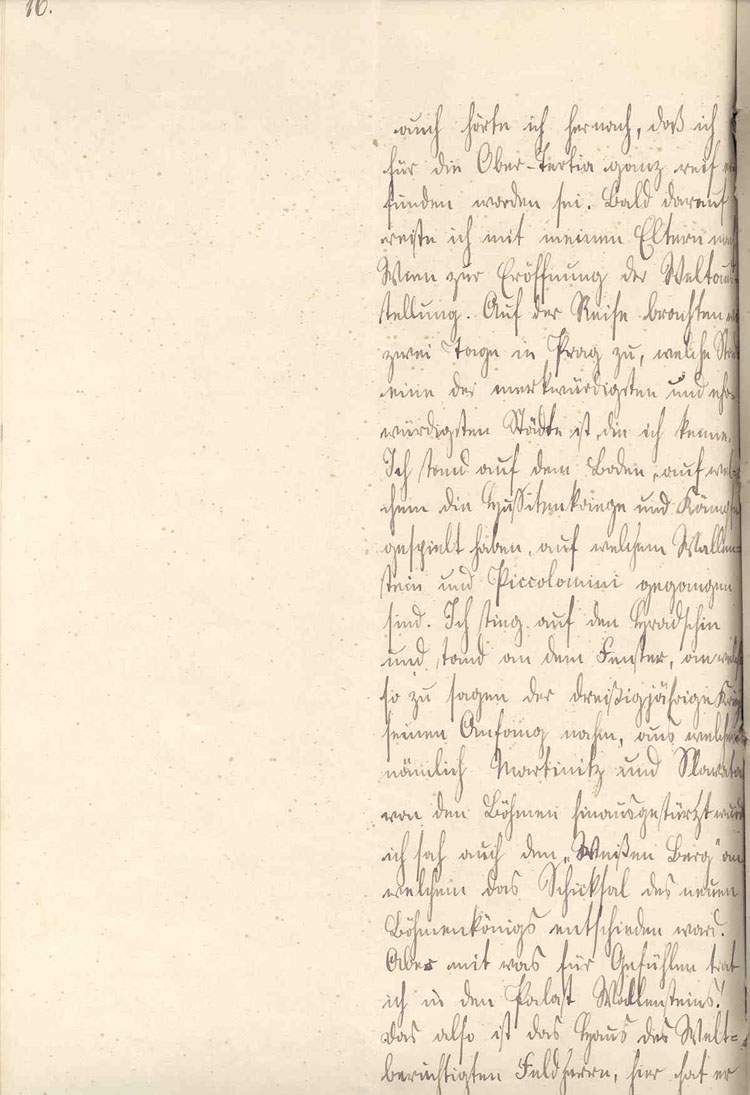 16.
auch hörte ich hernach, daß ich
für die Ober-Tertia ganz reif
funden worden sei. Bald darauf
reiste ich mit meinen Eltern
Wien zur Eröffnung der Weltaus
stellung. Auf der Reise brachten
zwei Tage in Prag zu, welche
eine der merkwürdigsten und ehr
würdigsten Städte ist, die ich kenne.
Ich stand auf dem Boden, auf wel
chem die Hussitenkriege und Kämpfe
gespielt haben, auf welchem Wallen
stein und Piccolomini gegangen
sind. Ich stieg auf den Hradschin
und stand an dem Fenster, an
so zu sagen der dreißigjährige
seinen Anfang nahm, aus welchem
nämlich Martinitz und Slawata
von den Böhmen hinausgestürzt
ich sah auch den „Weißen Berg" an
welchem das Schicksal des neuen
Böhmenkönigs entschieden ward.
Aber mit was für Gefühlen trat
ich in den Palast Wallensteins!
das also ist das Haus des Welt=
berüchtigten Feldherrn, hier hat er